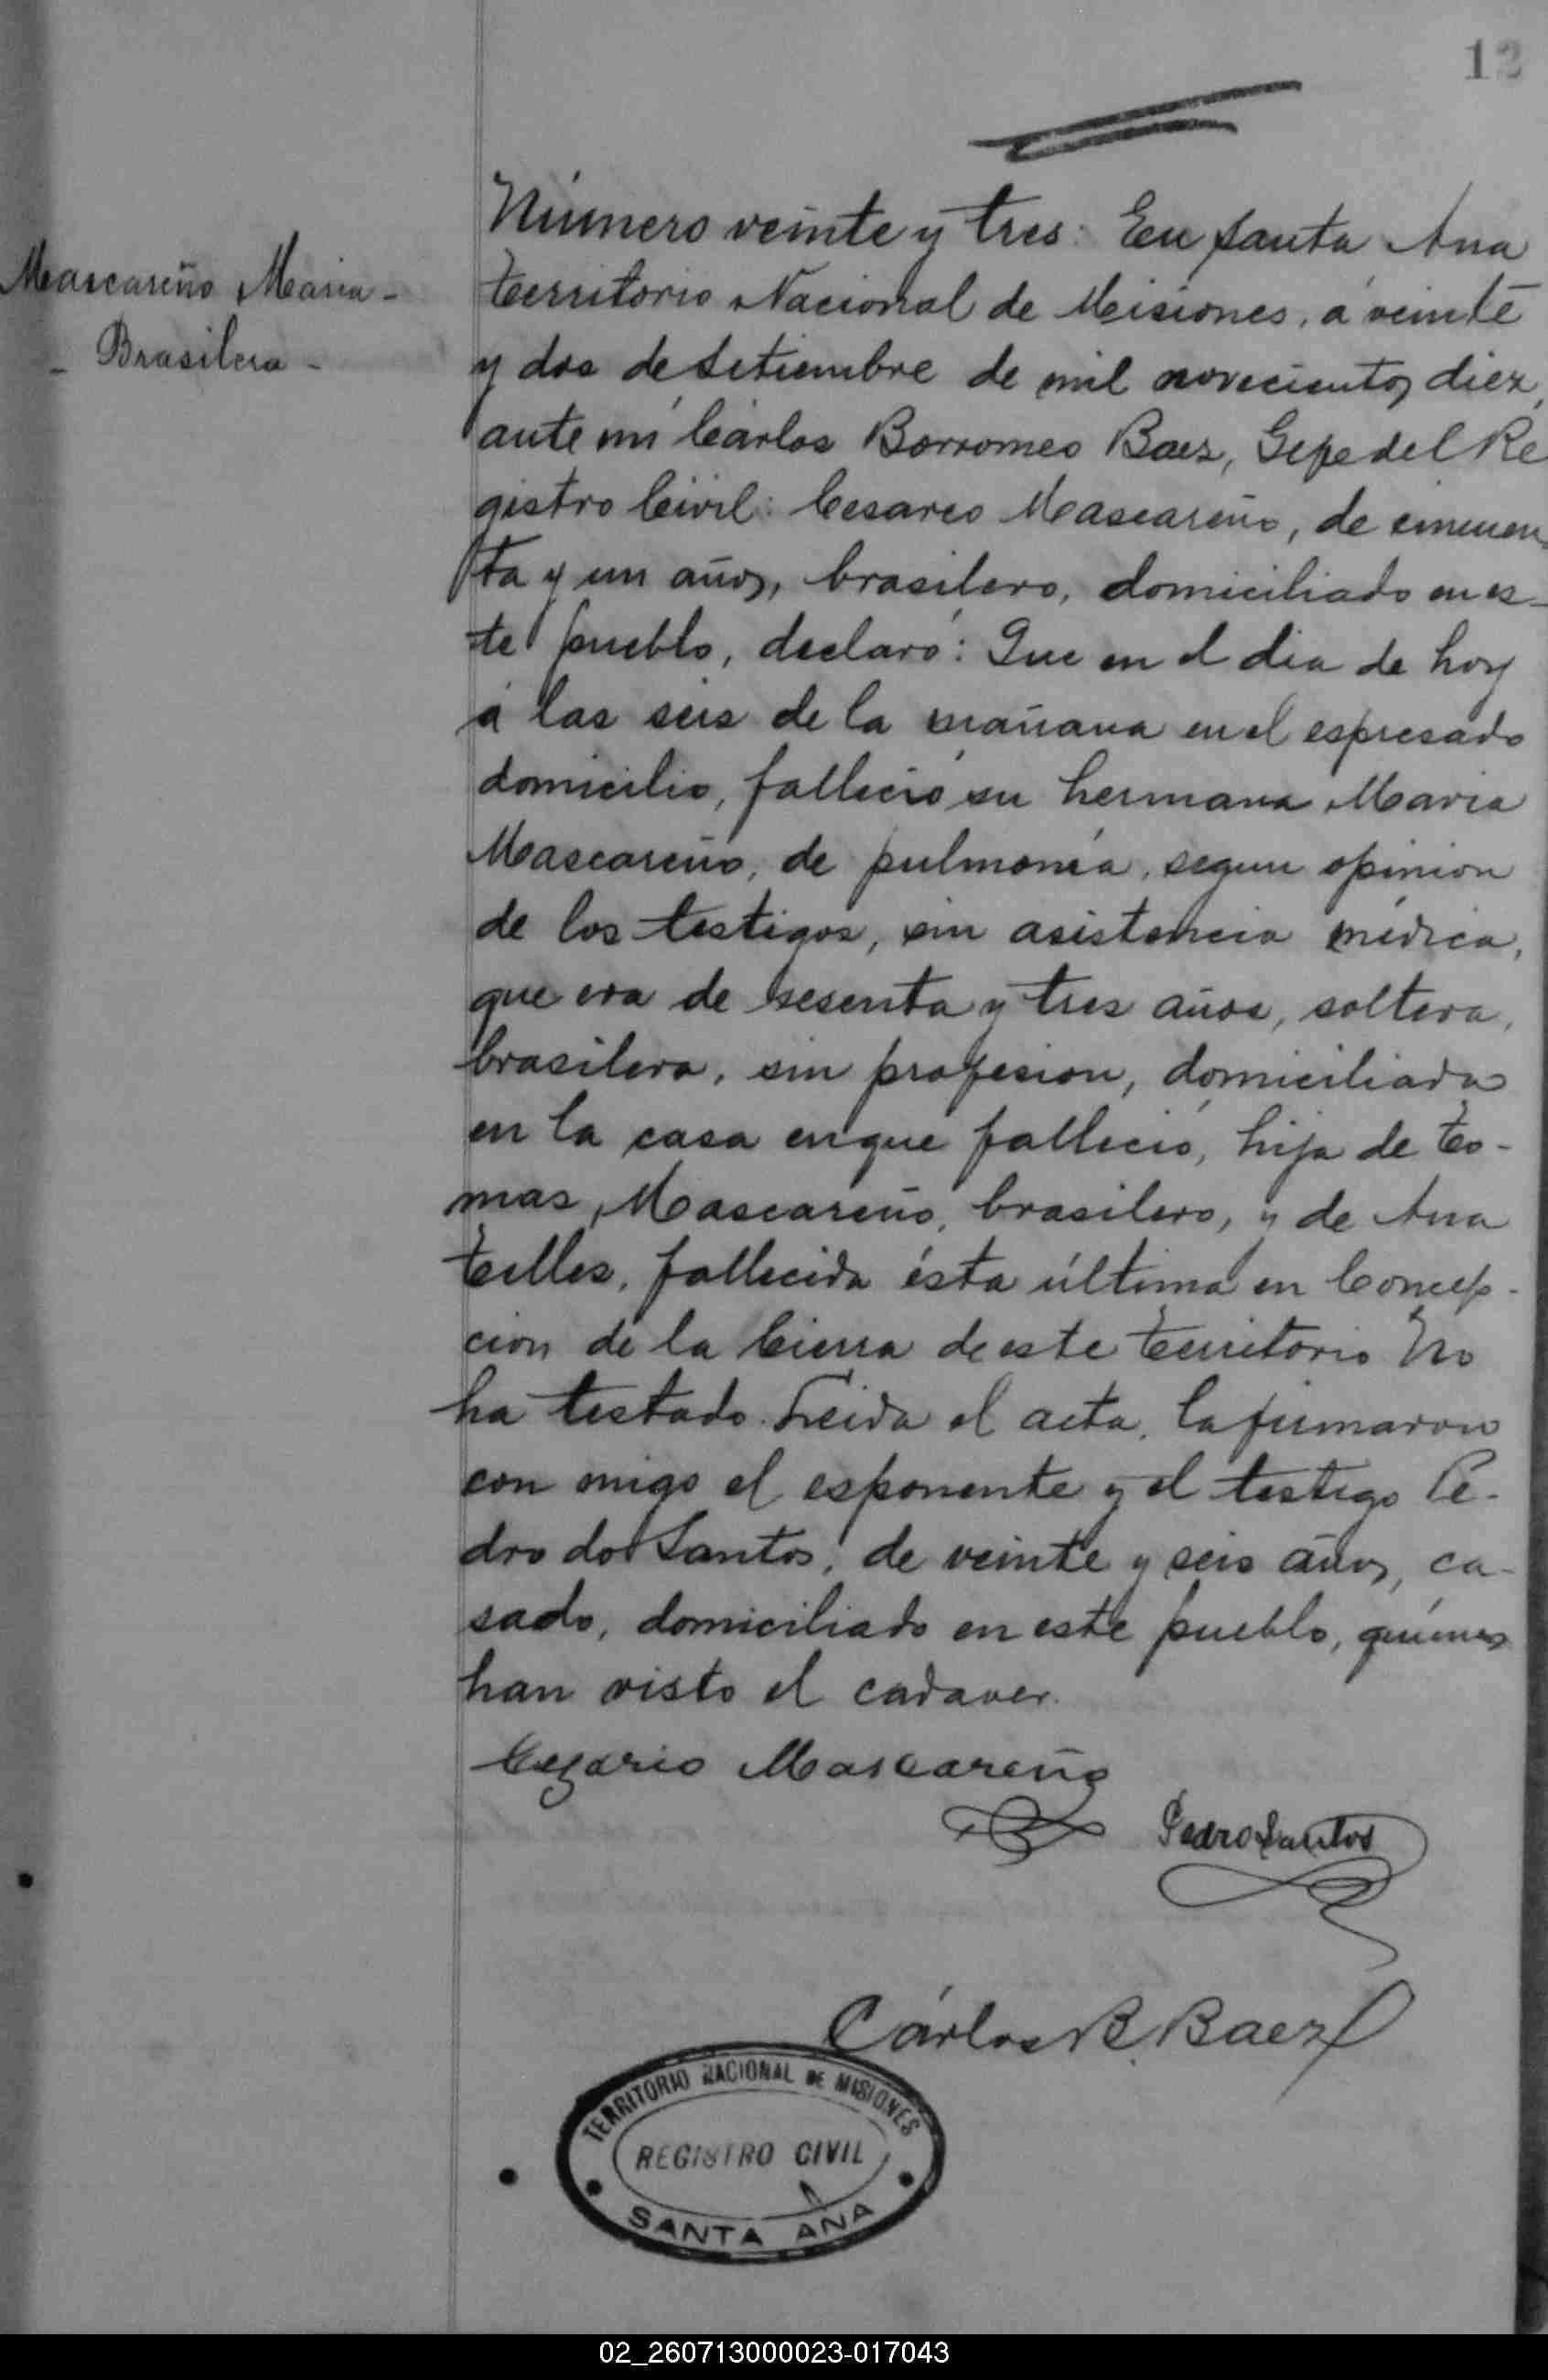 12
Mascareño Maria -
- Brasilera -
Número veinte y tres: En Santa Ana
Territorio Nacional de Misiones, á veinte
y dos de Setiembre de mil novecientos diez,
ante mi Cárlos Borromeo Baez, Gefe del Re
gistro Civil: Cesareo Mascareño, de cincuen
ta y un años, brasilero, domiciliado en es-
te pueblo, declaró: Que en el dia de hoy
á las seis de la mañana en el espresado
domicilio, falleció su hermana Maria
Mascareño, de pulmonía, segun opinion
de los testigos, sin asistencia médica,
que era de sesenta y tres años, soltera,
brasilera, sin profesion, domiciliada
en la casa en que falleció, hija de To-
mas Mascareño, brasilero, y de Ana
Telles, fallecida ésta última en Concep-
cion de la Cierra de este Territorio No
ha testado. Leida el acta, la firmaron
con migo el esponente y el testigo Pe-
dro do Santos, de veinte y seis años, ca-
sado, domiciliado en este pueblo, quienes
han visto el cadaver.
Cezario Mascareño
Pedro Santos
Cárlos B. Baez
TERRITORIO NACIONAL DE MISIONES
REGISTRO CIVIL
SANTA ANA
02_260713000023-017043